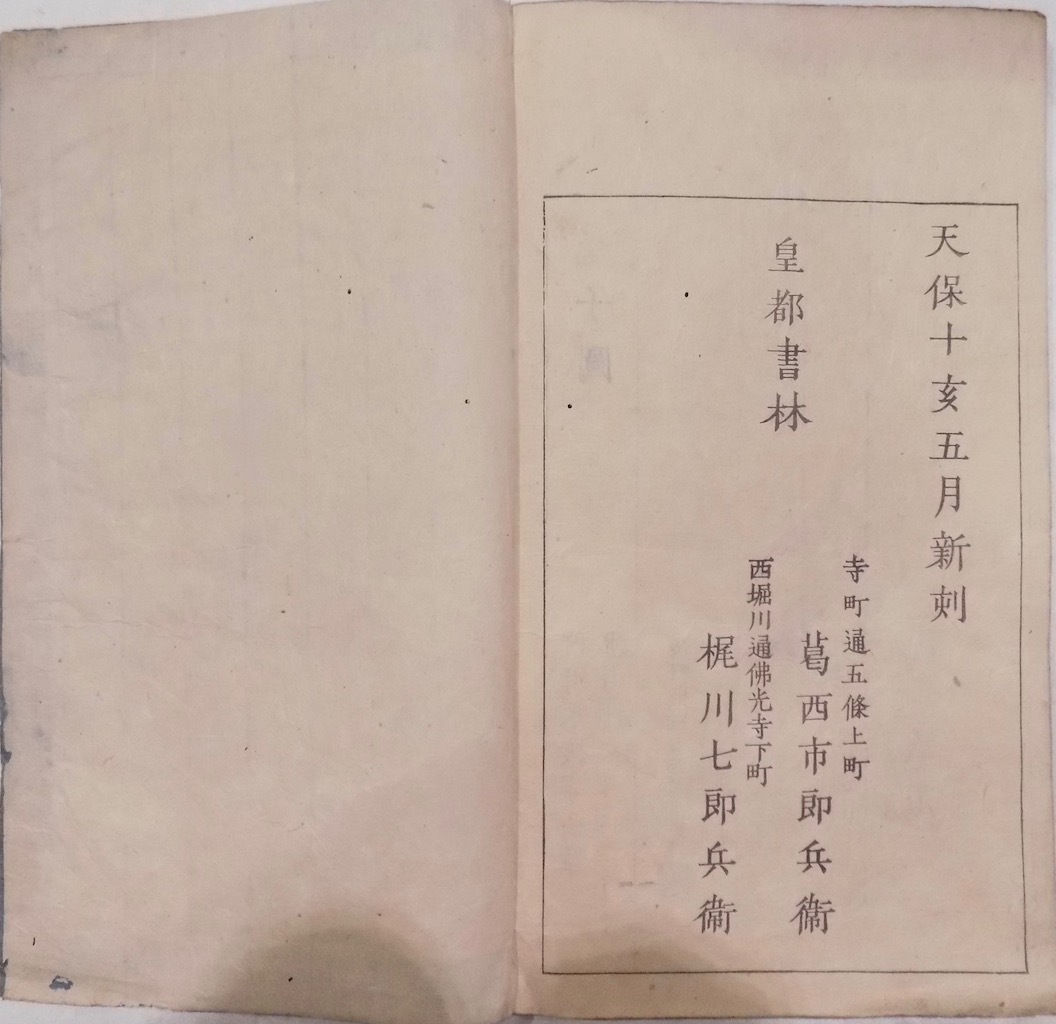 天保十亥五月新刻
皇都書林
寺町通五條上町
葛西市郎兵衞
西堀川通佛光寺下町
梶川七郎兵衞